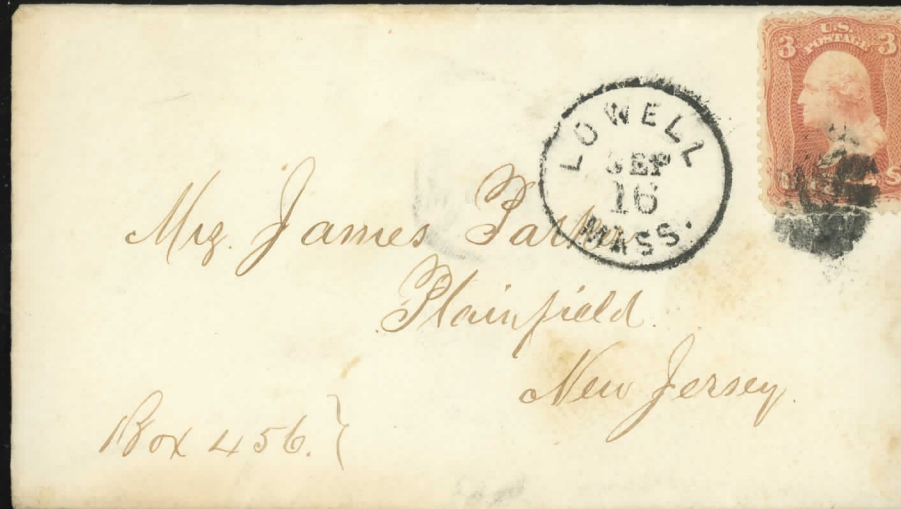 U.S.
POSTAGE
3 3
LOWELL
SEP
16
MASS.
Mrs. James
Plainfield.
New Jersey.
Box 456.}